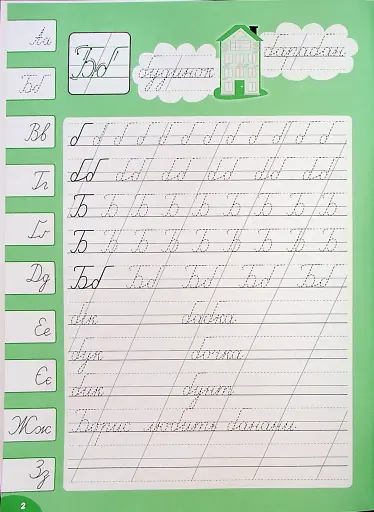 Аа
Бб
Вв
Гг
Ґґ
Дд
Ее
Єє
Жж
Зз
Бб будинок барабан
б б б б б б б б б б б
бб бб бб бб бб бб
Б Б Б Б Б Б Б Б Б
Б Б Б Б Б Б Б Б Б
Бб Бб Бб Бб Бб
бік бабка
бук бочка
бик бунт
Борис любить банани.
2